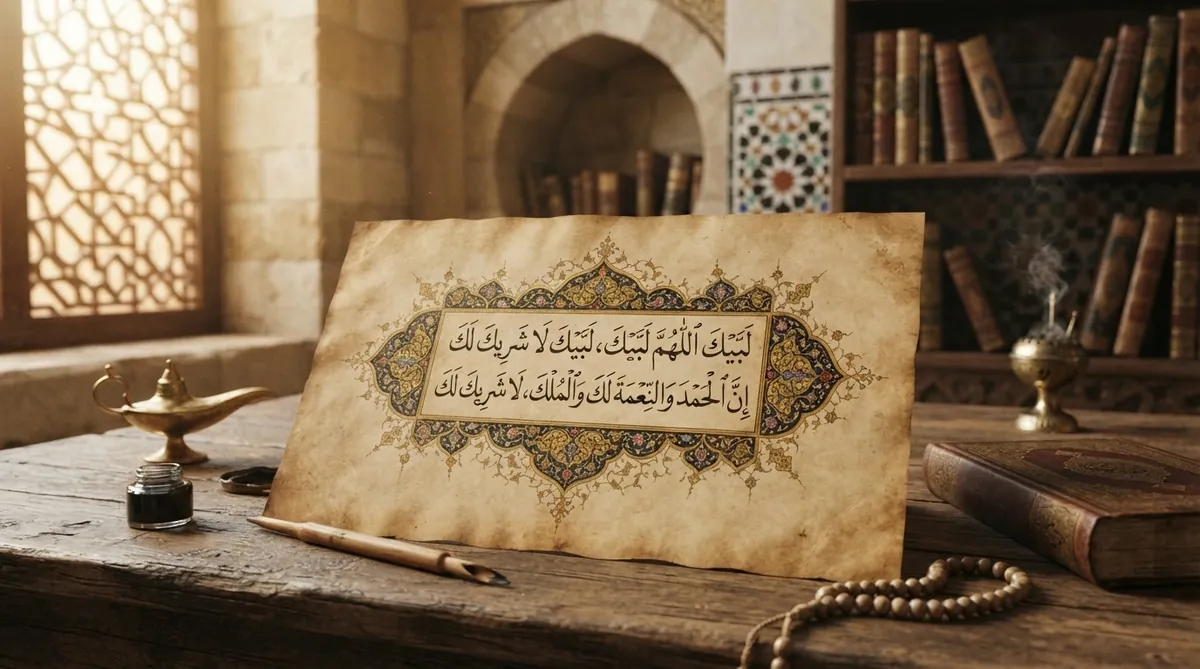 لَبَّيْكَ ٱللَّهُمَّ لَبَّيْكَ، لَبَّيْكَ لَا شَرِيكَ لَكَ
إِنَّ ٱلْحَمْدَ وَالنِّعْمَةَ لَكَ وَٱلْمُلْكَ، لَا شَرِيكَ لَكَ